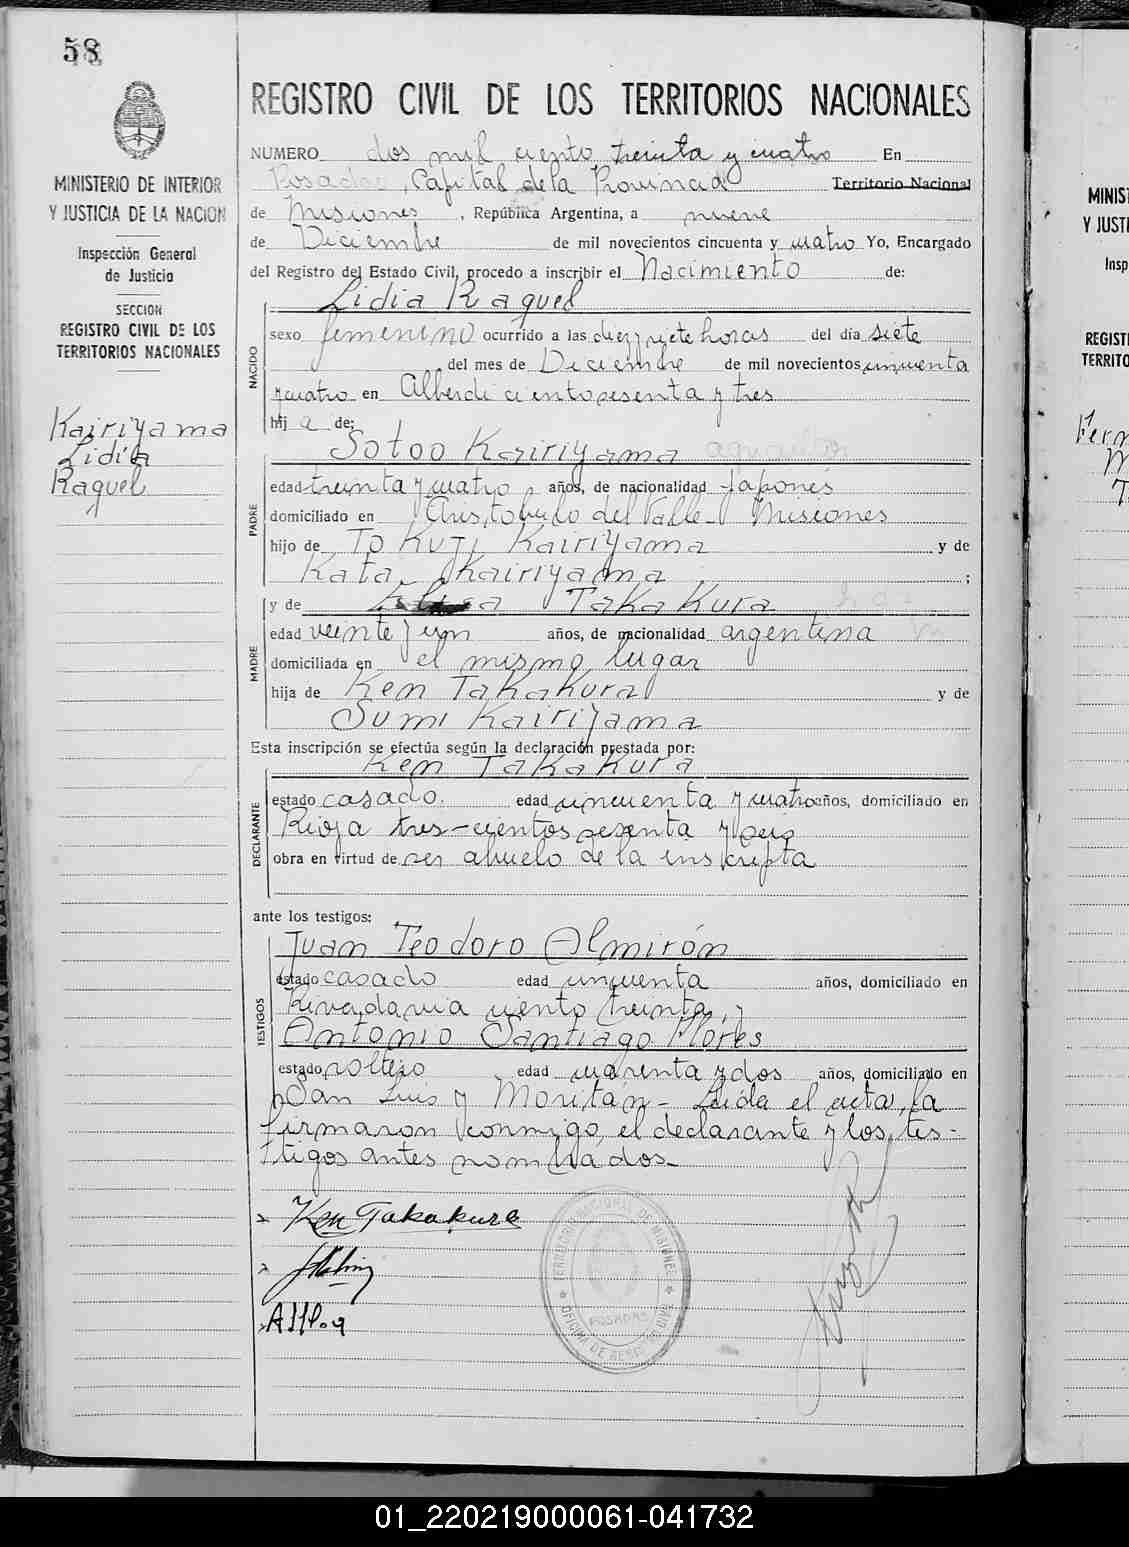 58
MINISTERIO DE INTERIOR
Y JUSTICIA DE LA NACION
Inspección General
de Justicia
SECCION
REGISTRO CIVIL DE LOS
TERRITORIOS NACIONALES
Kairiyama
Lidia
Raquel
REGISTRO CIVIL DE LOS TERRITORIOS NACIONALES
NUMERO dos mil ciento treinta y cuatro En
Posadas, Capital de la Provincia Territorio Nacional
de Misiones, República Argentina, a nueve
de Diciembre de mil novecientos cincuenta y cuatro Yo, Encargado
del Registro del Estado Civil, procedo a inscribir el Nacimiento de:
Lidia Raquel
NACIDO
sexo femenino ocurrido a las diez y siete horas del día siete
del mes de Diciembre de mil novecientos cincuenta
y cuatro en Alberdi ciento sesenta y tres
hij a de:
Sotoo Kairiyama agricultor
PADRE
edad treinta y cuatro años, de nacionalidad Japonés
domiciliado en Aristobulo del Valle - Misiones
hijo de Tokuji Kairiyama y de
Kata Kairiyama ;
y de Elisa Takakura
MADRE
edad veinte y un años, de nacionalidad argentina
domiciliada en el mismo lugar
hija de Ken Takakura y de
Sumi Kairiyama
Esta inscripción se efectúa según la declaración prestada por:
Ken Takakura
DECLARANTE
estado casado. edad cincuenta y cuatro años, domiciliado en
Rioja tres-cientos sesenta y seis
obra en virtud de ser abuelo de la inscripta
ante los testigos:
Juan Teodoro Almirón
TESTIGOS
estado casado edad cincuenta años, domiciliado en
Rivadavia ciento treinta, y
Antonio Santiago Flores
estado soltero edad cuarenta y dos años, domiciliado en
San Luis y Moritán - Leída el acta, la
firmaron conmigo, el declarante y los tes-
tigos antes nombrados.
Ken Takakura
TERRITORIO NACIONAL DE MISIONES
POSADAS
OFICINA DE REGISTRO CIVIL
MINIS
Y JUSTI
Insp
REGISTI
TERRITO
Fern
M
T
01_220219000061-041732